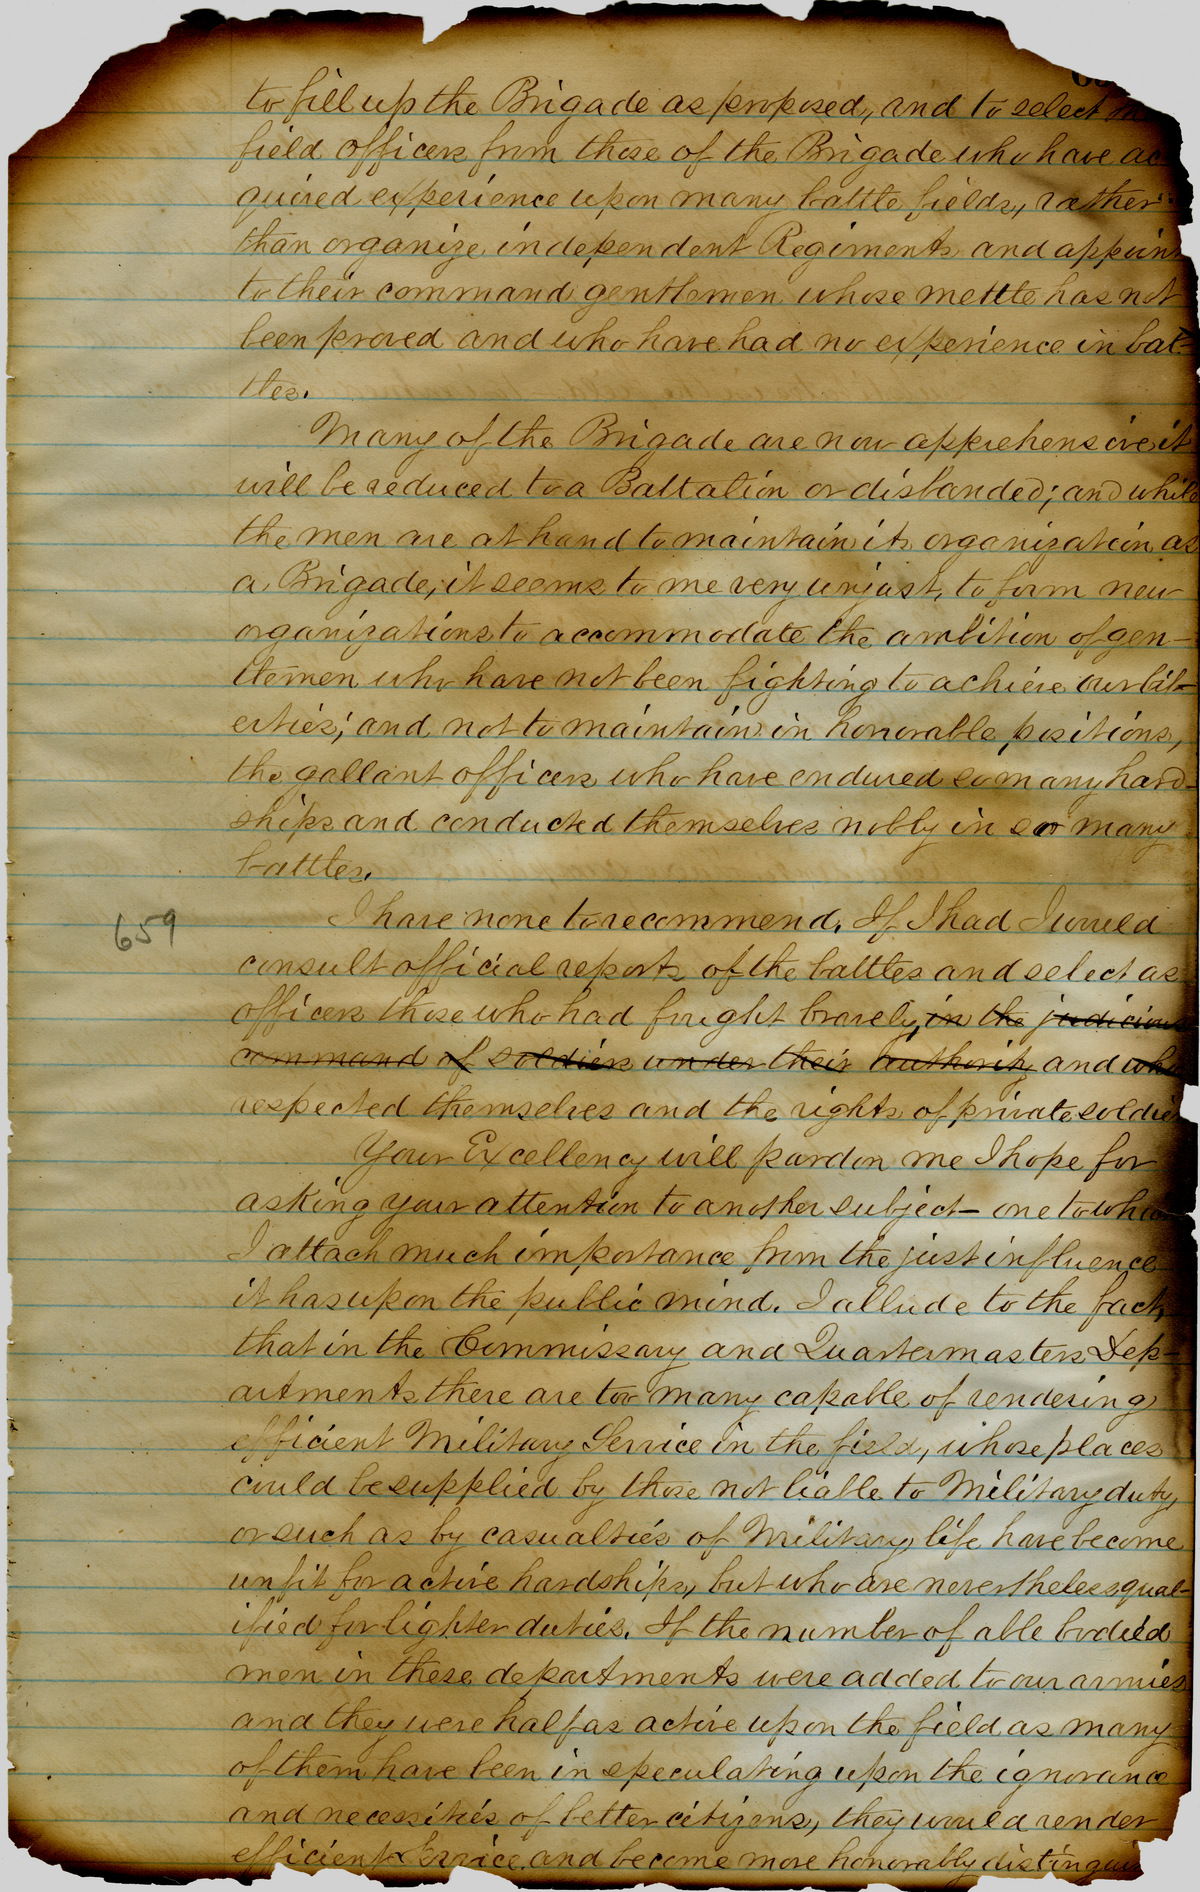 to fill up the Brigade as proposed, and to select
field officers from those of the Brigade who have ac
quired experience upon many battle fields, rather
than organize independent Regiments and appoin
to their command gentlemen whose mettle has not
been proved and who have had no experience in bat-
tles.
Many of the Brigade are now apprehensive it
will be reduced to a Battalion or disbanded; and while
the men are at hand to maintain its organization as
a Brigade, it seems to me very unjust, to form new
organizations to accommodate the ambition of gen-
tlemen who have not been fighting to achieve our lib-
erties; and not to maintain in honorable positions,
the gallant officers who have endured so many hard-
ships and conducted themselves nobly in so many
battles.
I have none to recommend. If I had I would
659
consult official reports of the battles and select as
officers those who had fought bravely, in the judicious
command of soldiers under their authority and who
respected themselves and the rights of private soldie
Your Excellency will pardon me I hope for
asking your attention to another subject - one to which
I attach much importance from the just influence
it has upon the public mind. I allude to the fact,
that in the Commissary and Quartermasters Dep-
artments there are too many capable of rendering
efficient Military Service in the field, whose places
could be supplied by those not liable to Military duty,
or such as by casualties of Military life have become
unfit for active hardships, but who are nevertheless qual-
ified for lighter duties. If the number of able bodied
men in these departments were added to our armies
and they were half as active upon the field as many
of them have been in speculating upon the ignorance
and necessities of better citizens, they would render
efficient Service and become more honorably distingui